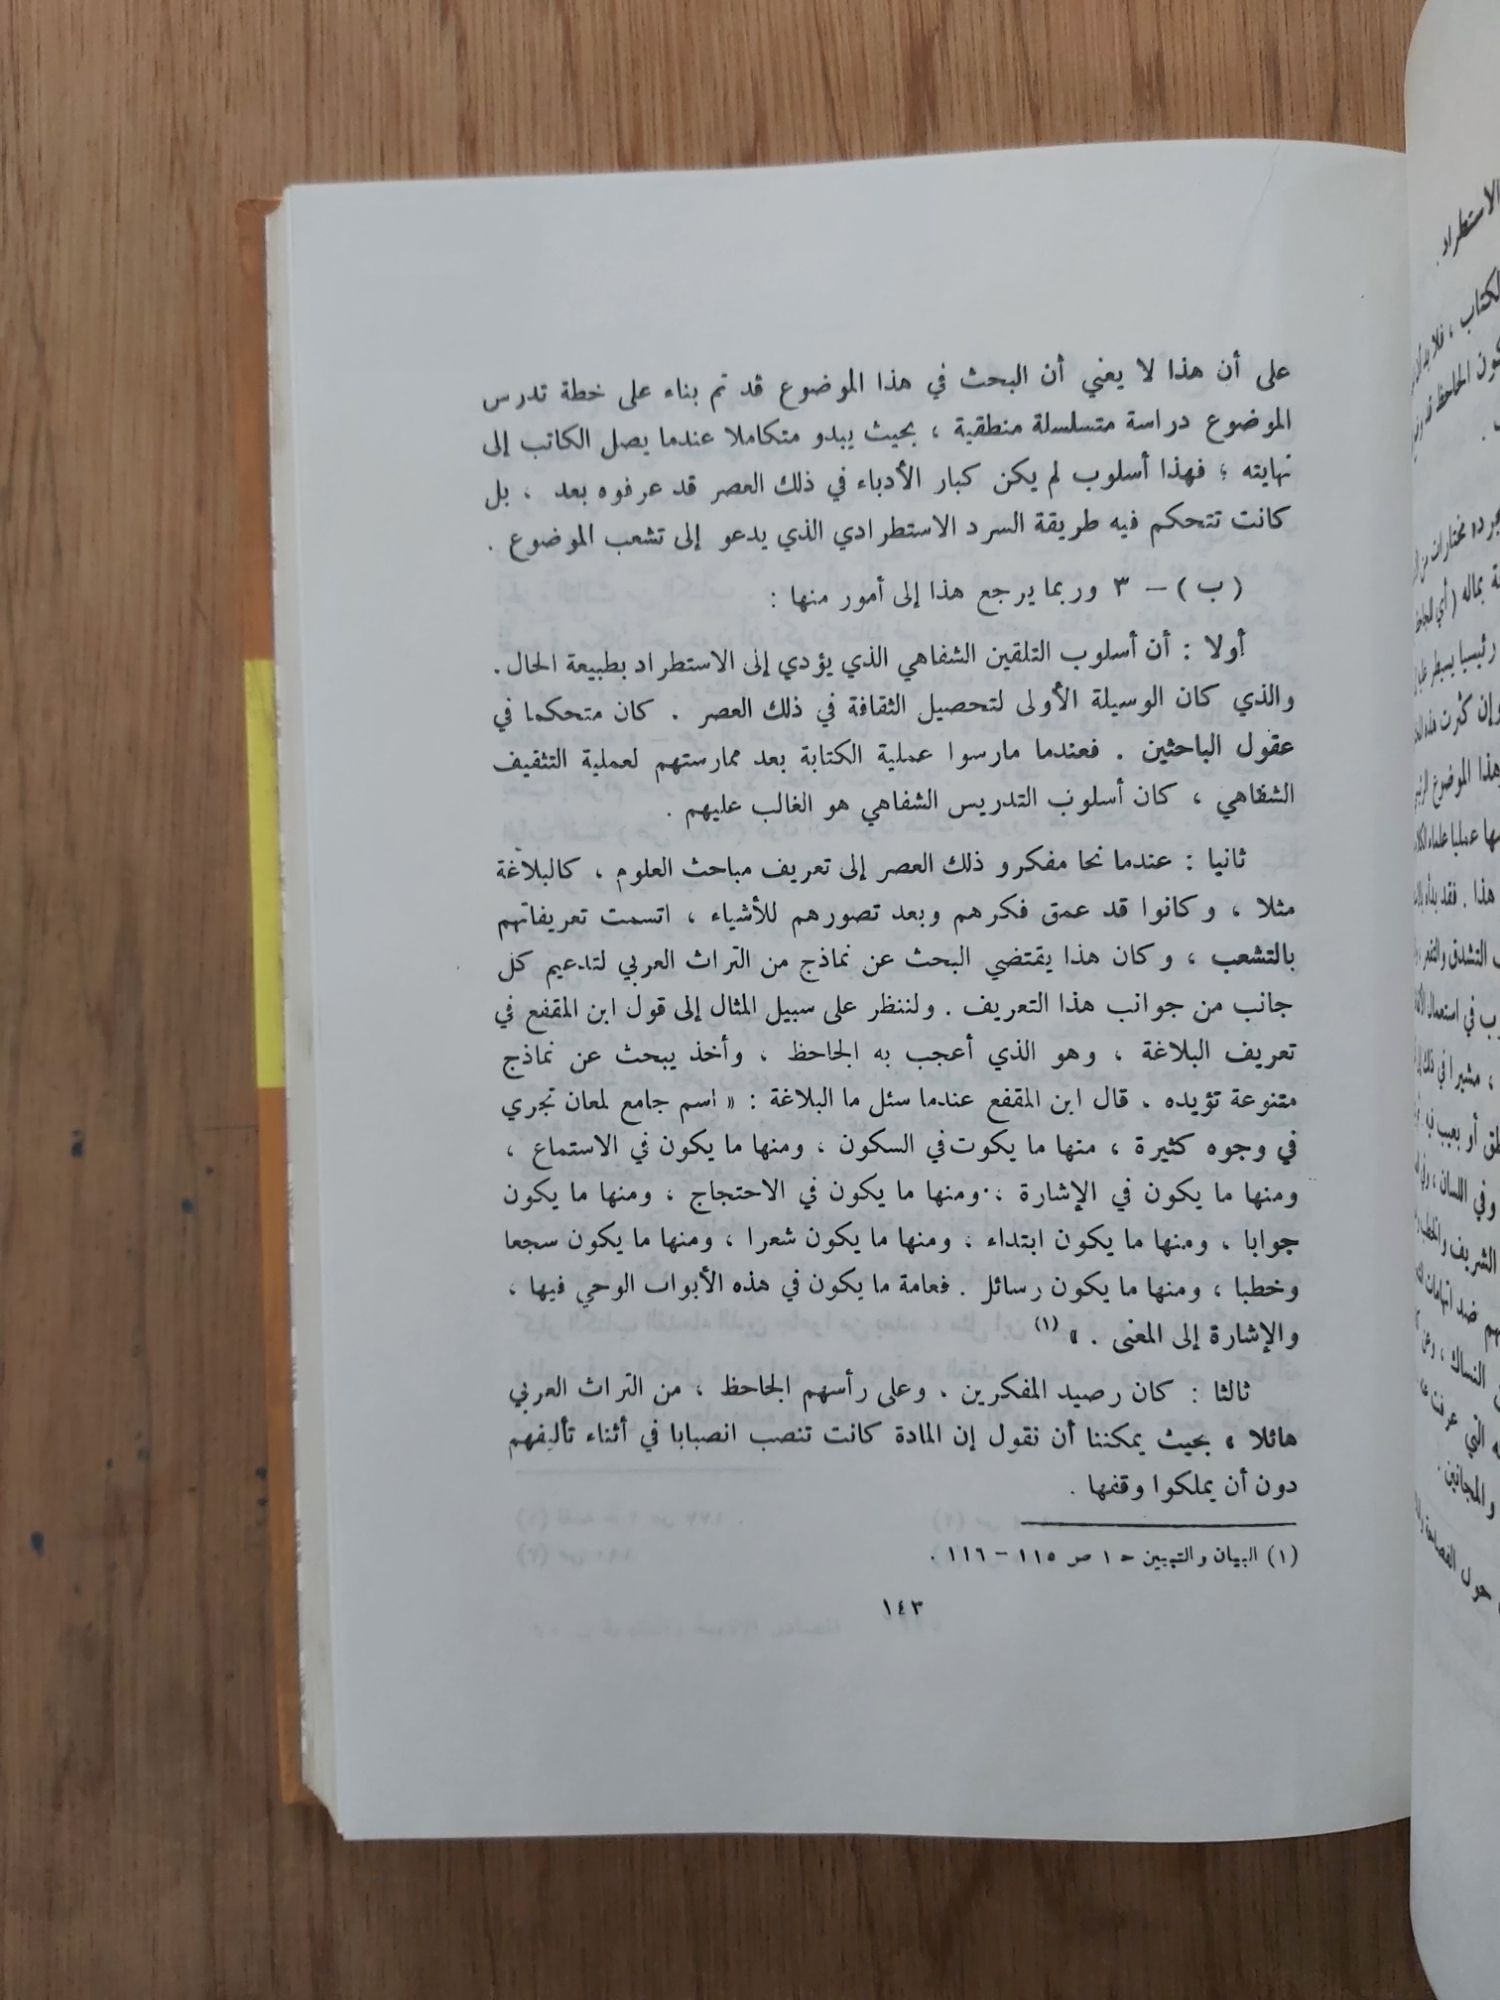 على أن هذا لا يعني أن البحث في هذا الموضوع قد تم بناء على خطة تدرس
الموضوع دراسة متسلسلة منطقية ، بحيث يبدو متكاملا عندما يصل الكاتب إلى
نهايته ؛ فهذا أسلوب لم يكن كبار الأدباء في ذلك العصر قد عرفوه بعد ، بل
كانت تتحكم فيه طريقة السرد الاستطرادي الذي يدعو إلى تشعب الموضوع .
( ب ) – ٣ وربما يرجع هذا إلى أمور منها :
أولا : أن أسلوب التلقين الشفاهي الذي يؤدي إلى الاستطراد بطبيعة الحال .
والذي كان الوسيلة الأولى لتحصيل الثقافة في ذلك العصر . كان متحكما في
عقول الباحثين . فعندما مارسوا عملية الكتابة بعد ممارستهم لعملية التثقيف
الشفاهي ، كان أسلوب التدريس الشفاهي هو الغالب عليهم .
ثانيا : عندما نحا مفكرو ذلك العصر إلى تعريف مباحث العلوم ، كالبلاغة
مثلا ، وكانوا قد عمق فكرهم وبعد تصورهم للأشياء ، اتسمت تعريفاتهم
بالتشعب ، وكان هذا يقتضي البحث عن نماذج من التراث العربي لتدعيم كل
جانب من جوانب هذا التعريف . ولننظر على سبيل المثال إلى قول ابن المقفع في
تعريف البلاغة ، وهو الذي أعجب به الجاحظ ، وأخذ يبحث عن نماذج
متنوعة تؤيده . قال ابن المقفع عندما سئل ما البلاغة : « اسم جامع لمعان تجري
في وجوه كثيرة ، منها ما يكوت في السكون ، ومنها ما يكون في الاستماع ،
ومنها ما يكون في الإشارة ، ومنها ما يكون في الاحتجاج ، ومنها ما يكون
جوابا ، ومنها ما يكون ابتداء ، ومنها ما يكون شعرا ، ومنها ما يكون سجعا
وخطبا ، ومنها ما يكون رسائل . فعامة ما يكون في هذه الأبواب الوحي فيها ،
والإشارة إلى المعنى . » (١)
ثالثا : كان رصيد المفكرين ، وعلى رأسهم الجاحظ ، من التراث العربي
هائلا ، بحيث يمكننا أن نقول إن المادة كانت تنصب انصبابا في أثناء تأليفهم
دون أن يملكوا وقفها .
(١) البيان والتبيين حـ ١ ص ١١٥ – ١١٦ .
١٤٣
الاستطراد .